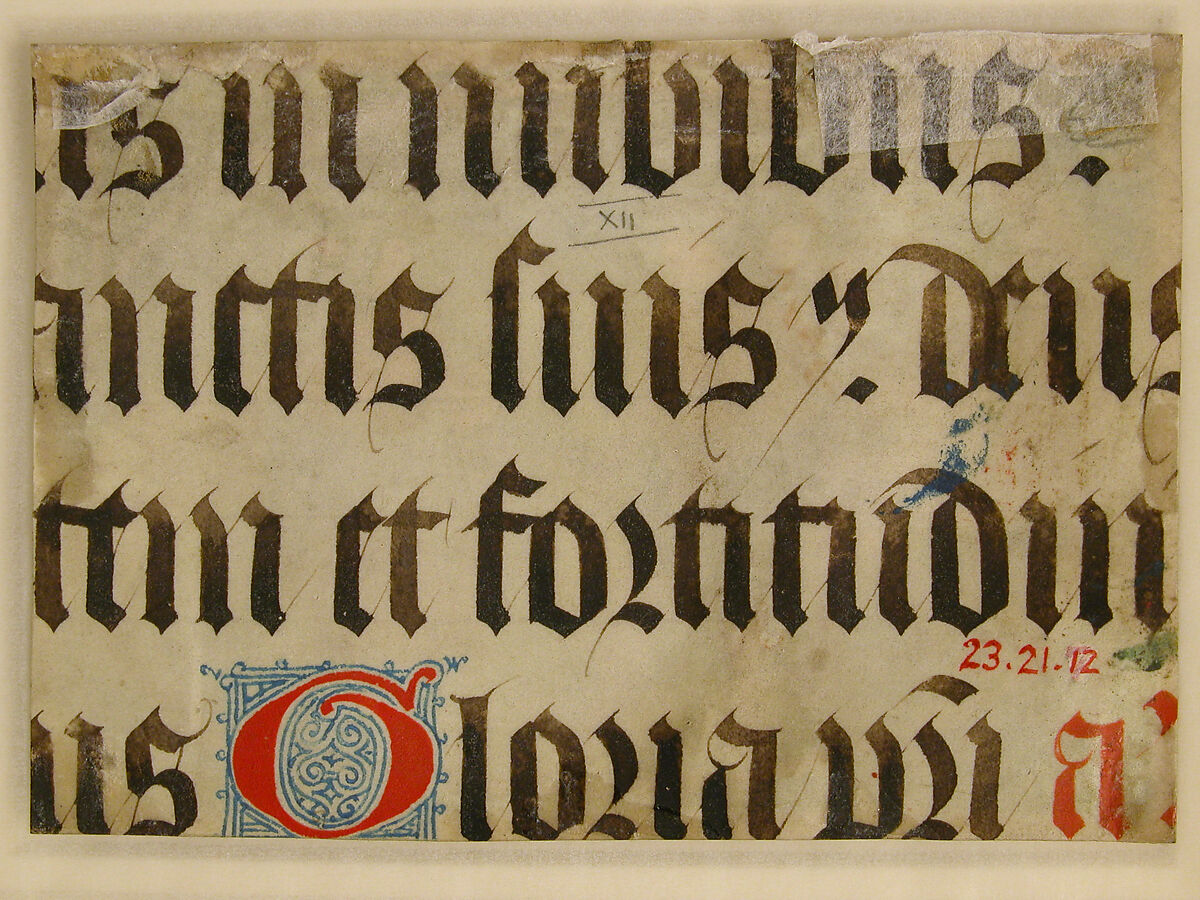 us in nubibus.
XII
anctis suis. deus
tem et fortitudin
23.21.12
us Gloria pri A